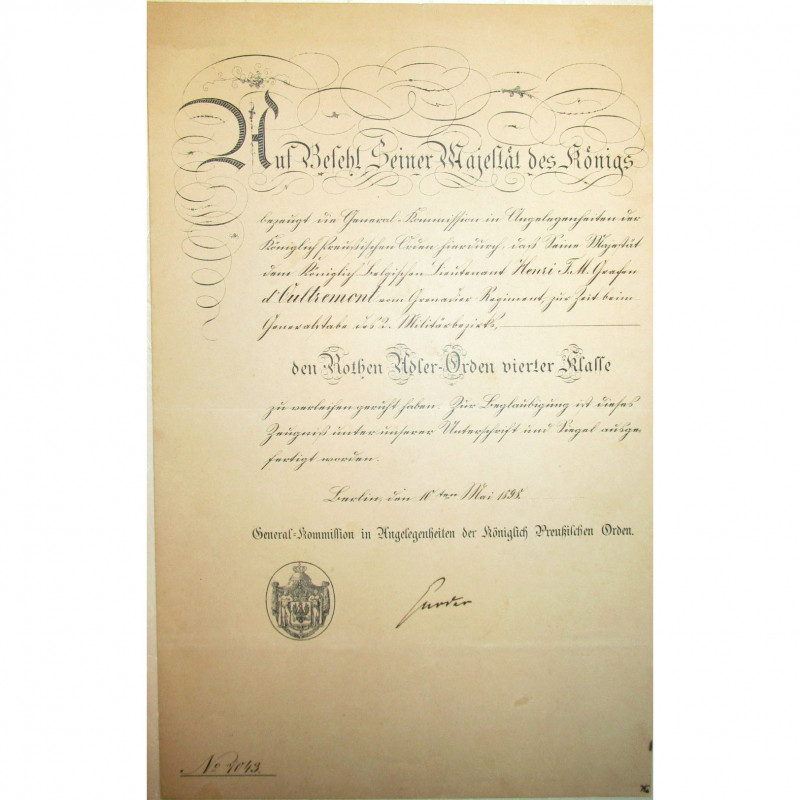 Auf Befehl Seiner Majestät des Königs
bezeugt die General-Kommission in Angelegenheiten der
Königlich Preußischen Orden hierdurch, daß Seine Majestät
dem Königlich Belgischen Lieutenant Henri T. M. Grafen
d'Oultremont vom Grenadier Regiment, zur Zeit beim
Generalstabe des 2. Militärbezirks,
den Rothen Adler-Orden vierter Klasse
zu verleihen geruht haben. Zur Beglaubigung ist dieses
Zeugniß unter unserer Unterschrift und Siegel ausge-
fertigt worden.
Berlin, den 10ten Mai 1898.
General-Kommission in Angelegenheiten der Königlich Preußischen Orden.
No 2043.